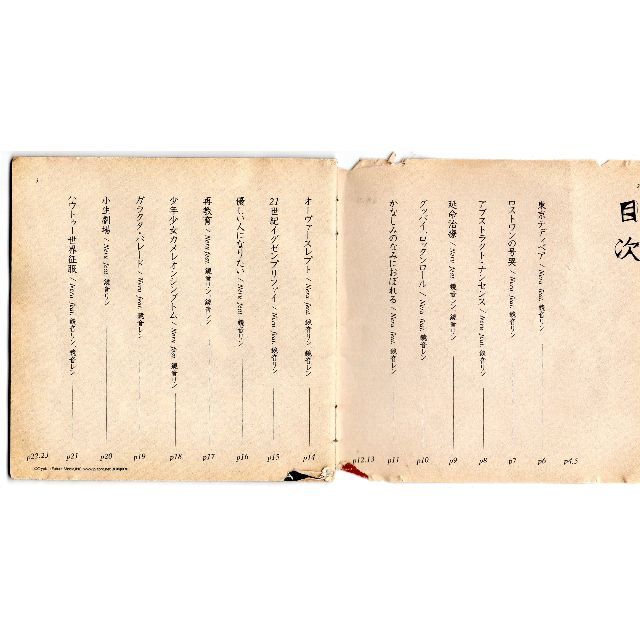 目次
東京テディベア / Neru feat. 鏡音リン
ロストワンの号哭 / Neru feat. 鏡音リン
アブストラクト・ナンセンス / Neru feat. 鏡音リン
延命治療 / Neru feat. 鏡音リン 鏡音レン
グッバイ、ロックンロール / Neru feat. 鏡音レン
かなしみのなみにおぼれる / Neru feat. 鏡音レン
p4,5
p6
p7
p8
p9
p10
p11
p12,13
オーヴァースレプト / Neru feat. 鏡音リン 鏡音レン
21世紀イグゼンプリファイ / Neru feat. 鏡音リン
優しい人になりたい / Neru feat. 鏡音リン
再教育 / Neru feat. 鏡音リン 鏡音レン
少年少女カメレオンシンプトム / Neru feat. 鏡音リン
ガラクタ・パレード / Neru feat. 鏡音レン
小生劇場 / Neru feat. 鏡音レン
ハウトゥー世界征服 / Neru feat. 鏡音リン 鏡音レン
p14
p15
p16
p17
p18
p19
p20
p21
p22,23